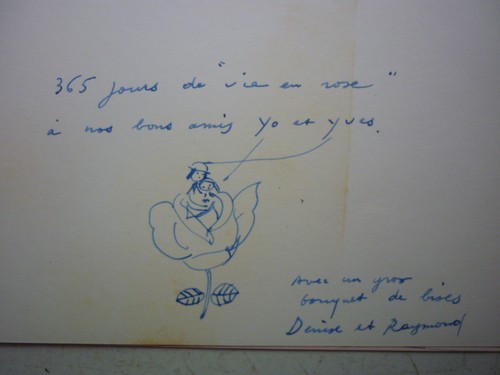 365 jours de "vie en rose"
à nos bons amis Yo et Yves.
Avec un gros
bouquet de bises
Denise et Raymond